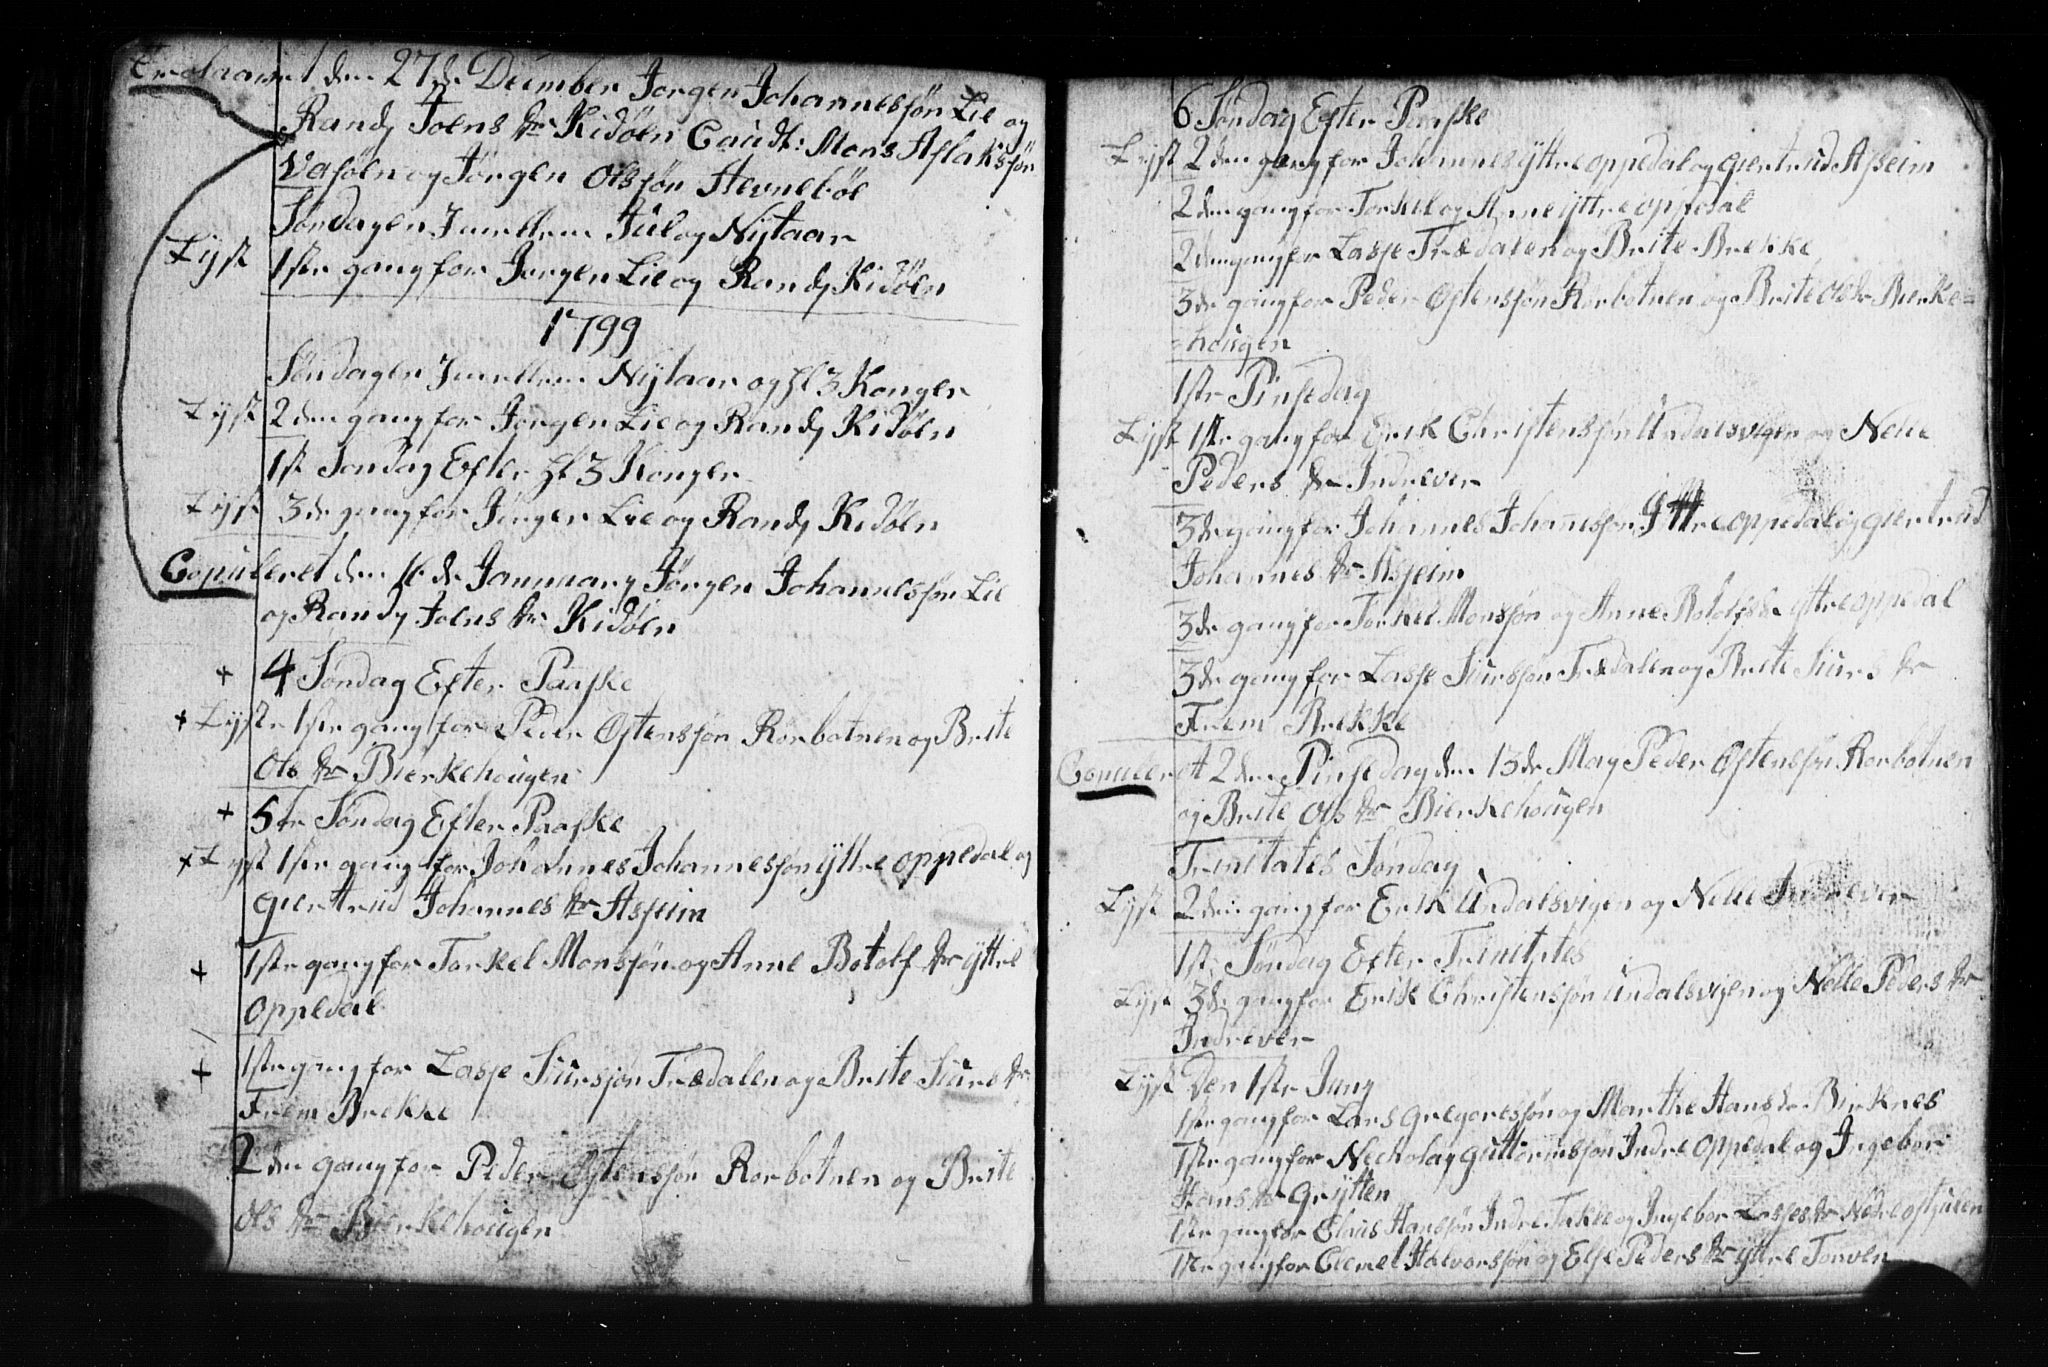 Trolovet den 27de December Jørgen Johannessøn Lie og
Randj Joens dtr Kidøln Caudt: Mons Aflaksøn
Vasøln og Jørgen Olssøn Hevnebøe
Søndagen Imellem Jul og Nytaar
Lyst 1ste gang for Jørgen Lie og Randj Kidøln
1799
Søndagen Imellem Nytaar og hl 3 Konger
Lyst 2den gang for Jørgen Lie og Randj Kidøln
1st Søndag Efter hl 3 Konger
Lyst 3de gang for Jørgen Lie og Randj Kidøln
Copuleret den 16de Januuary Jørgen Johannessøn Lie
og Randj Joens dtr Kidøln
+ 4 Søndag Efter Paaske
+ Lyste 1ste gang for Peder Østenssøn Rørbotnen og Brite
Ols dtr Bierkehougen
+ 5te Søndag Efter Paaske
+ Lyst 1ste gang for Johannes Johannessøn yttre oppedal og
giertrud Johannes dtr Asheim
+ 1ste gang for Torkel Monssøn og Anne Botolf dtr yttre
oppedal
+ 1ste gang for Lasse Siurssøn Trædalen og Brite Siurs dtr
Frem Brekke
2den gang for Peder Østenssøn Rorbotnen og Brite
Ols dtr Bierkehougen
6 Søndag Efter Paaske
Lyst 2den gang for Johannes yttre oppedal og giertrud Asheim
2den gang for Torkel og Anne yttre oppedal
2den gang for Lasse Trædalen og Brite Brekke
3de gang for Peder Østenssøn Rørbotnen og Brite Olsdtr Bierke=
=hougen
1ste Pinsedag
Lyst 1ste gang for Erik Christenssøn Undalsvigen og Nelle
Peders dtr Indrever
3de gang for Johannes Johannessøn Yttre oppedal og giertrud
Johannes dtr Asheim
3de gang for Torkel Monssøn og Anne Botolfsdr yttre oppedal
3de gang for Lasse Siurssøn Trædalen og Brite Siurs dtr
Frem Brekke
Copuleret 2den Pinsedag den 13de May Peder Østenssøn Rorbotnen
og Brite Ols dtr Bierkehougen
Trinitates Søndag
Lyst 2den gang for Erik Undalsvigen og Nelle Indrever
1ste Søndag Efter Trinitates
Lyst 3de gang for Erik Christenssøn Undalsvigen og Nelle Peders dtr
Indrever
Lyst Den 1ste Juny
1ste gang for Lars Gregoressøn og Marthe Hans dr Birknes
1ste gang for Nicholay Guttormssøn Indre Oppedal og Ingebor
Hans dtr Grytten
1ste gang for Claus Hanssøn Indre Takle og Ingebor Lasses dtr Nedre
1ste gang for Clemet Halvorssøn og Else Peders dtr yttre Torven